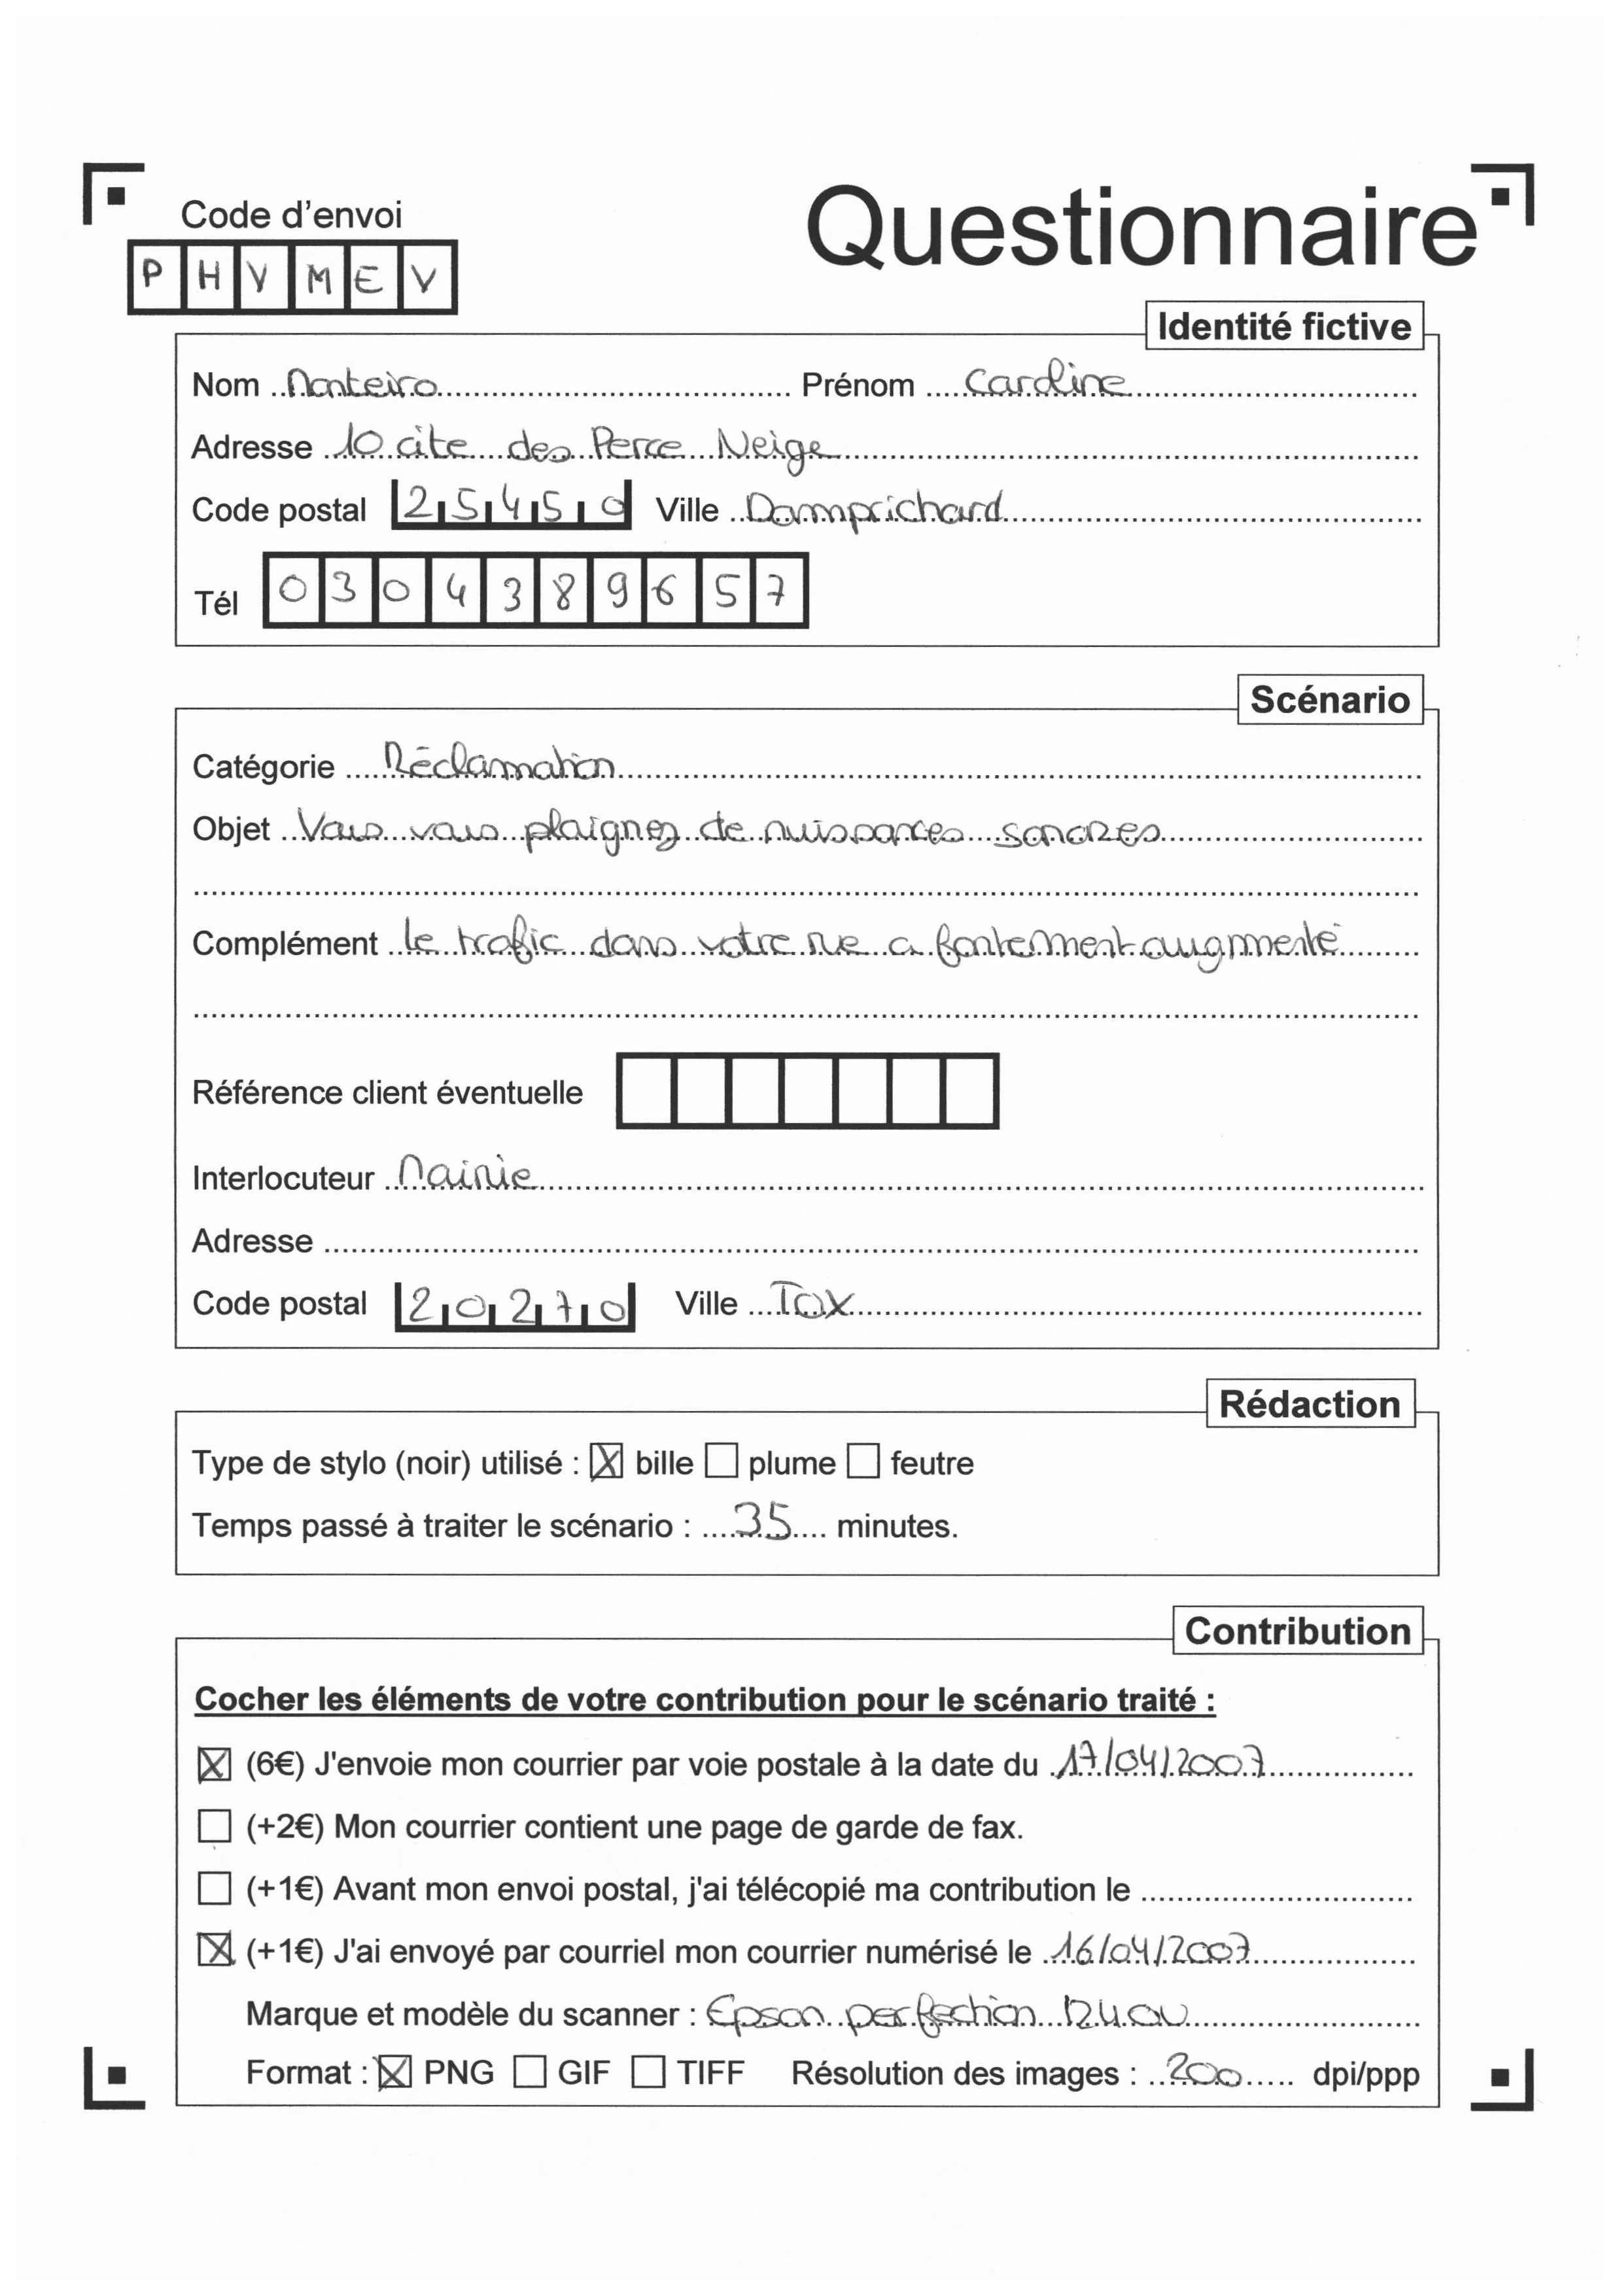 Code d'envoi
Questionnaire
P H V M E V
Identité fictive
Nom Monteiro Prénom Caroline
Adresse 10 cite des Perce Neige
Code postal 25450 Ville Damprichard
Tél 0304389657
Scénario
Catégorie Réclamation
Objet Vous vous plaignez de nuisances sonores
Complément le trafic dans votre rue a fortement augmenté
Référence client éventuelle
Interlocuteur Mairie
Adresse
Code postal 20270 Ville Tox
Rédaction
Type de stylo (noir) utilisé : ☒ bille ☐ plume ☐ feutre
Temps passé à traiter le scénario : 35 minutes.
Contribution
Cocher les éléments de votre contribution pour le scénario traité :
☒ (6€) J'envoie mon courrier par voie postale à la date du 17/04/2007
☐ (+2€) Mon courrier contient une page de garde de fax.
☐ (+1€) Avant mon envoi postal, j'ai télécopié ma contribution le
☒ (+1€) J'ai envoyé par courriel mon courrier numérisé le 16/04/2007
Marque et modèle du scanner : Epson perfection 1240U
Format : ☒ PNG ☐ GIF ☐ TIFF Résolution des images : 200 dpi/ppp